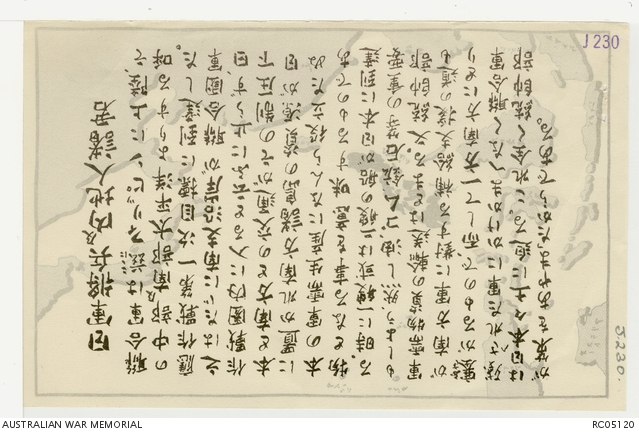 AUSTRALIAN WAR MEMORIAL
RC05120
J.230.
日軍將兵及内地人諸君
聯合軍は茲ここにフィリッピンに上陸、そ
の中部及南部太平洋よりする呼
應作戰第一次目標に到達した。
之はたゞに南支沿岸が聯合國軍
作戰圏内に入ると云ふに止らず、日
本と南方との交通がその制圧下
に置かれ南方諸島の資源が日
本の軍需生産になんら役立たぬ
物となる事を意味するものであ
る。時に一艘或は二艘の船が日本に到達
もしよう、然し油、ゴム、鉱石等の重要
軍需物資の輸送はとまる。又統帥部
が南方軍に對する補給支援の道も
塞ふさがるもので、而して一方南方にとり
殘された軍にかけかまへなく聯合軍
は日本々土に迫る。これ全く統帥部
が策をあやまたからである。
J230